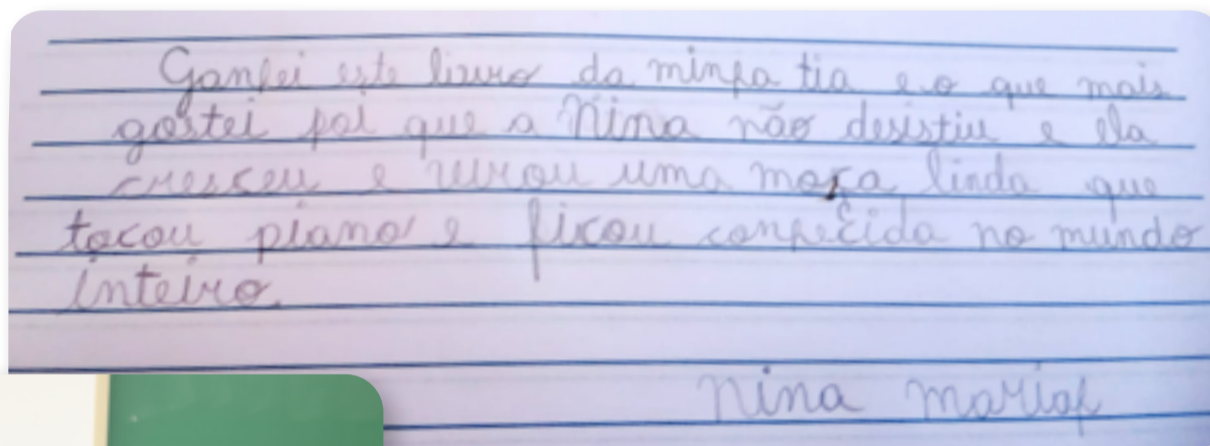 Ganhei este livro da minha tia e o que mais
gostei foi que a Nina não desistiu e ela
cresceu e virou uma moça linda que
tocou piano e ficou conhecida no mundo
inteiro.
Nina Maria